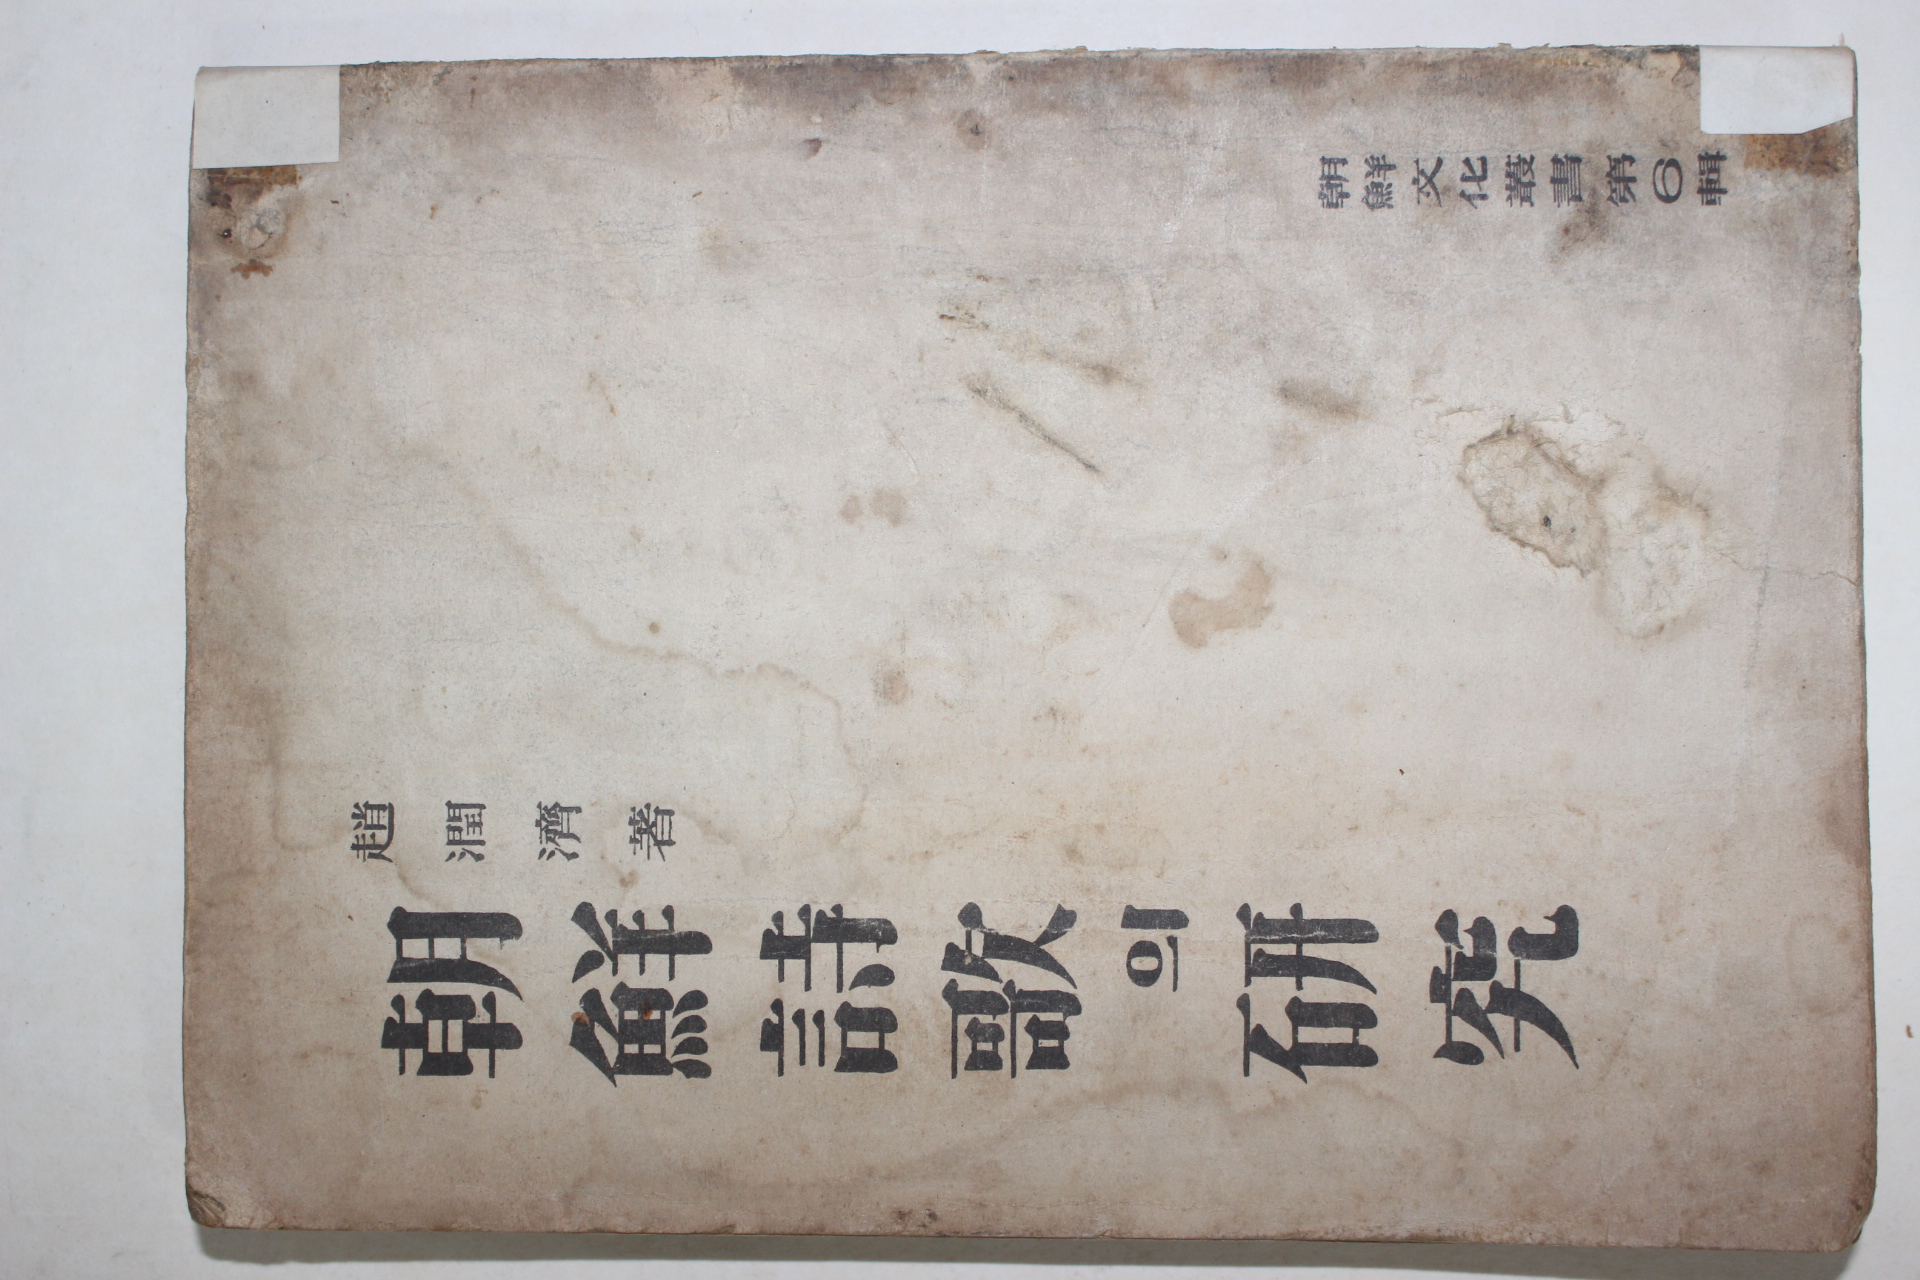 朝鮮文化叢書第6輯
趙潤濟著
朝鮮詩歌의硏究